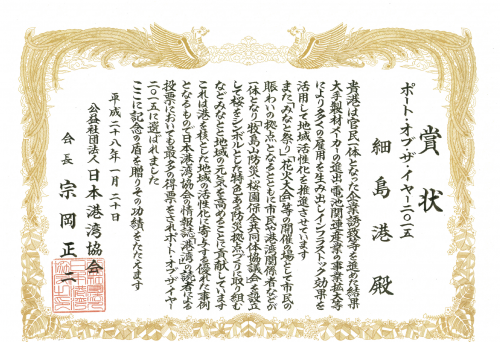 賞状
ポート・オブ・ザ・イヤー二〇一五
細島港殿
貴港は官民一体となった企業誘致等を進めた結果
大手製材メーカーの進出、電池関連産業の事業拡大等
により多くの雇用を生み出しインフラストック効果を
活用して地域活性化を推進させています
また「みなと祭り」「花火大会」等の開催の場として市民の
賑わいの拠点となるとともに市民や港湾関係者などが
一体となり「牧島山防災・桜公園保全共同体協議会」を設立
して桜をシンボルとした特色ある防災拠点づくりに取り組む
などみなとと地域の元気を高めることに貢献しています
これは港を核とした地域の活性化に寄与する優れた事例
となるもので日本港湾協会の情報誌「港湾」の読者による
投票においても最多の得票をされポートオブザイヤー
二〇一五に選ばれました
ここに記念の盾を贈りその功績をたたえます
平成二十八年一月二十日
公益社団法人日本港湾協会
会長 宗岡正二